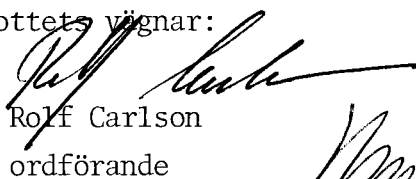 ottets vägnar:
Rolf Carlson
ordförande